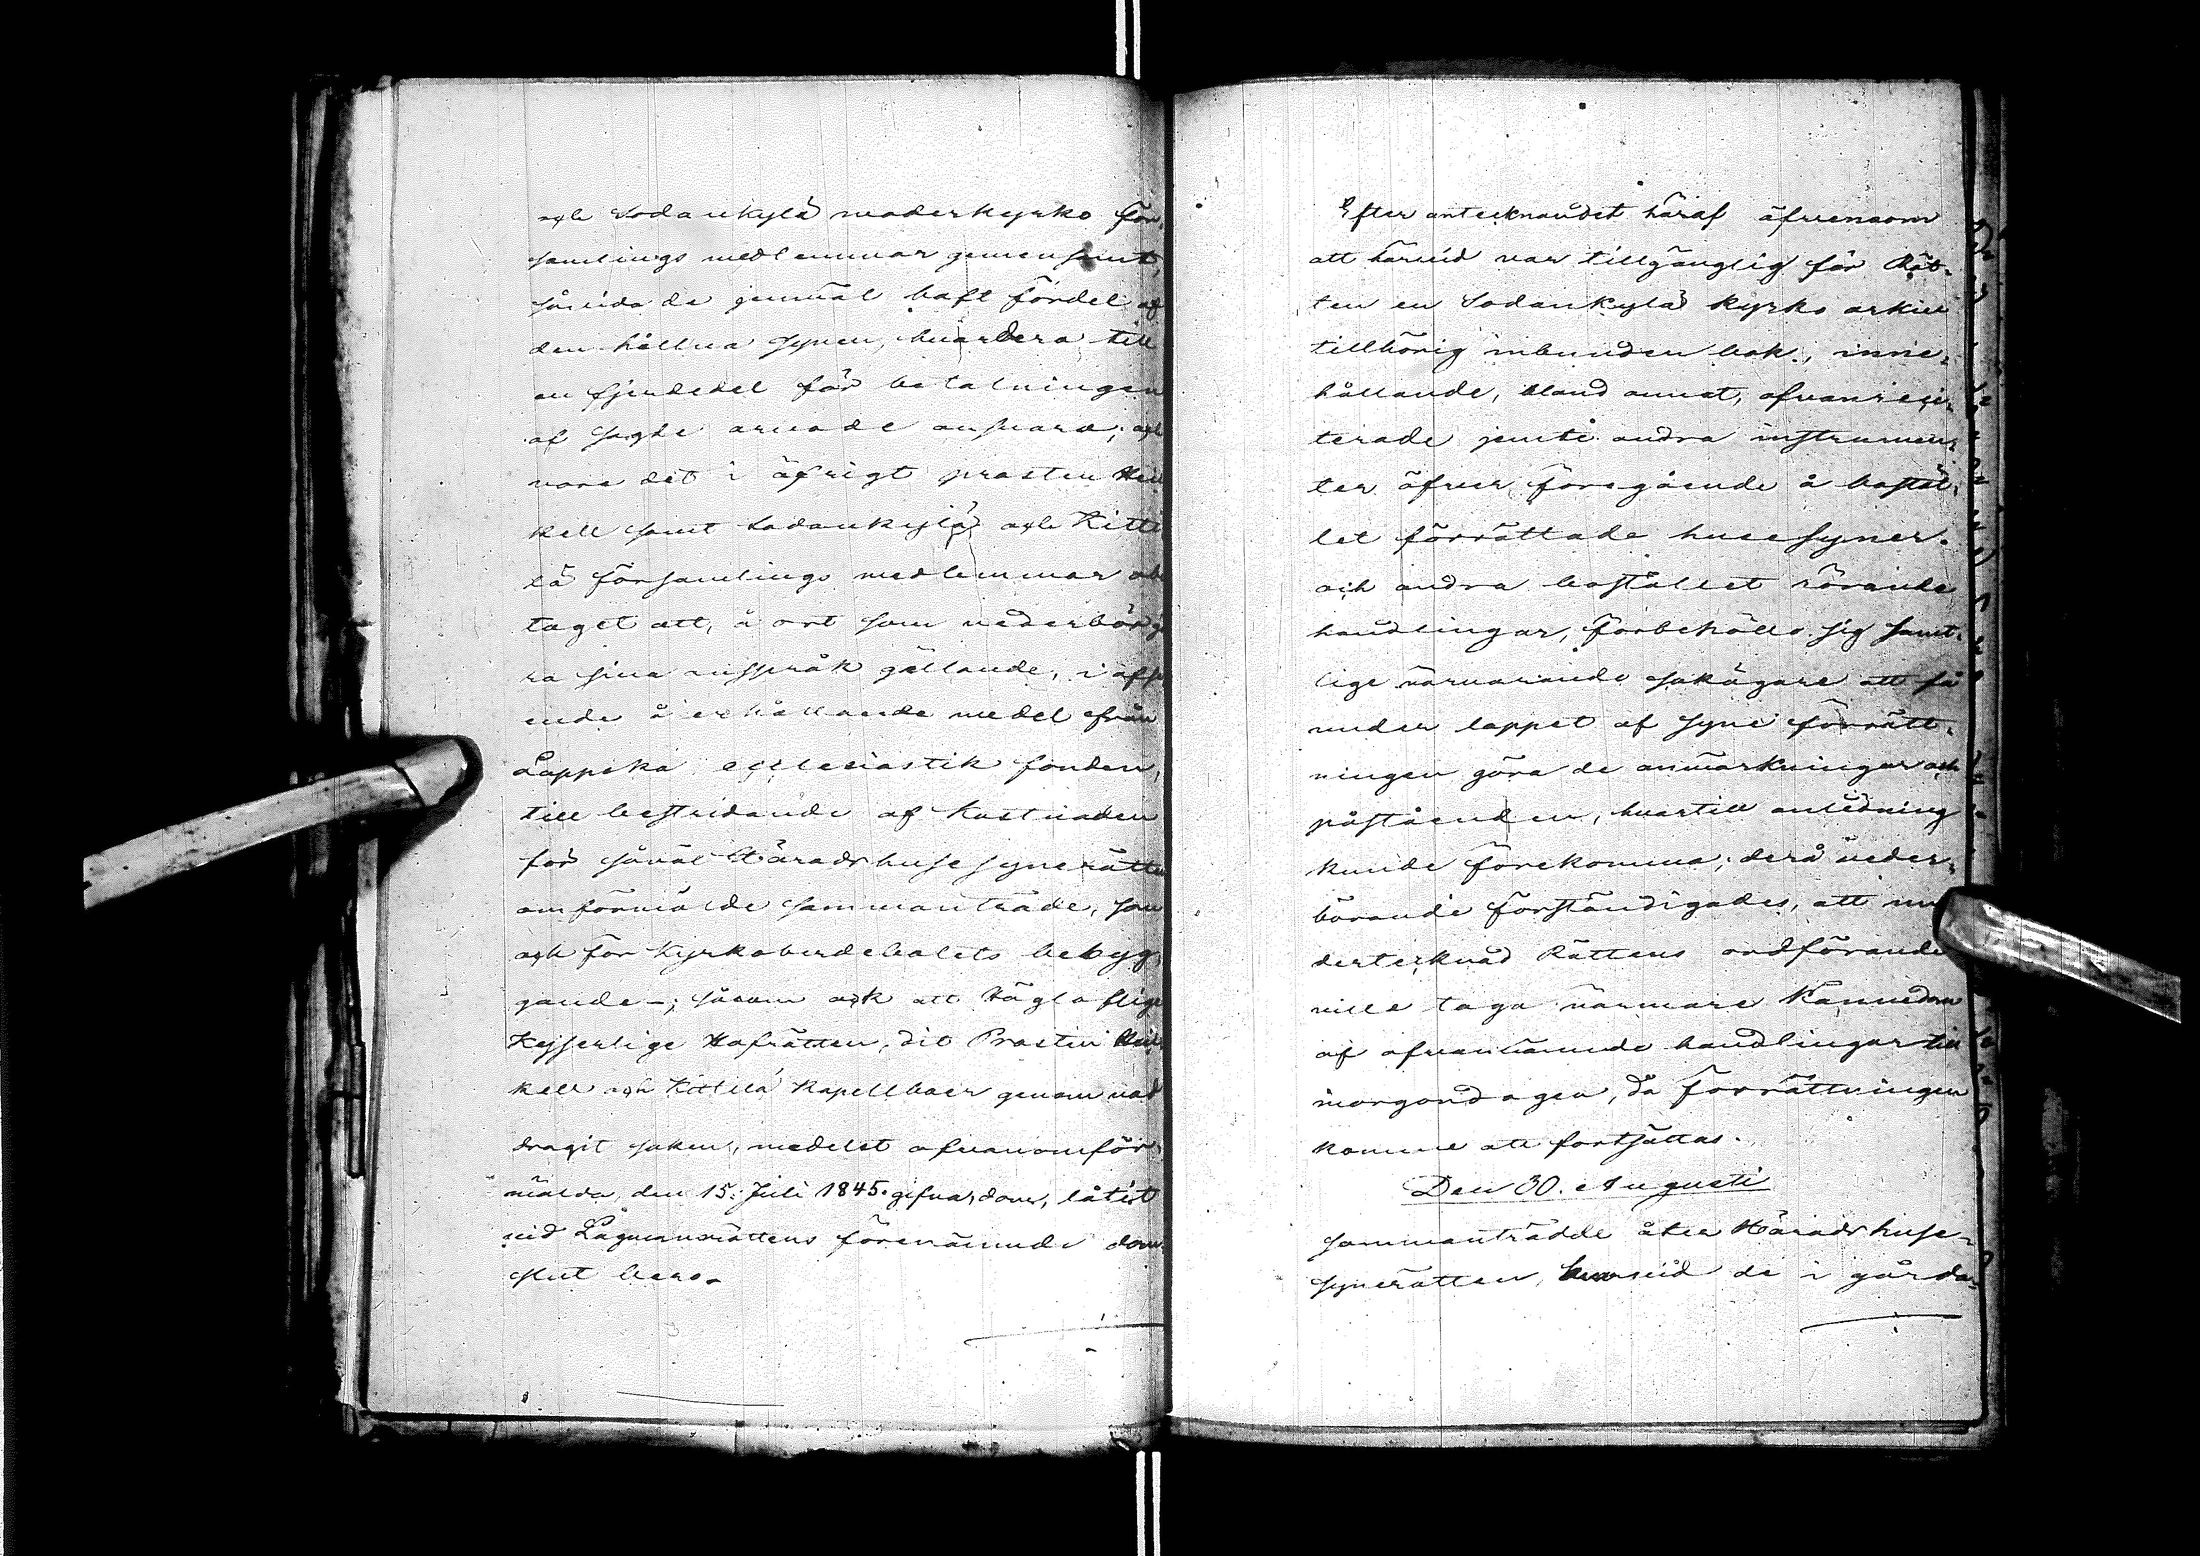 och Sodankylä moderkyrko för-
samlings medlemmar gemensamt,
såvida de jemväl haft fördel af
den hållna synen, hvardera till
en fjerdedel för betalningen
af sagde arvode ansvara; och
vare det i öfrigt prosten Hei-
kell samt Sodankylä och Kitti-
lä församlings medlemmar obe-
taget att, å ort som vederbör, gö-
ra sina anspråk gällande, i afse-
ende å erhållande medel från
Lappska ecclesiastik fonden,
till bestridande af kostnaden
för såväl Häradshusesynerätten
omförmälde sammanträde, som
och för kyrkoherdebolets bebyg-
gande -; såsom ock att Höglofliga
Kejserlige Hofrätten, dit Prosten Hei-
kell och Kittilä Kapellboer genom vad
dragit saken, medelst ofvanomför-
mälda, den 15. Juli 1845. gifna, dom, låtit
vid Lagmansrättens förenämnde dom-
slut bero.
Efter antecknandet häraf äfvensom
att härvid var tillgänglig för Rät-
ten en Sodankylä kyrko arkiv
tillhörig inbunden bok, inne-
hållande, bland annat, ofvanreci-
terade jemte andra instrumen-
ter öfver föregående å bostäl-
let förrättade husesyner
och andra bostället rörande
handlingar, förbehöllo sig samt-
lige närvarande sakägare att få
under loppet af syne förrätt-
ningen göra de anmärkningar och
påståenden, hvartill anledning
kunde förekomma; derå veder-
börande förständigades, att un-
dertecknad Rättens ordförande
ville taga närmare kännedom
af ofvannämnde handlingar till
morgondagen, då förrättningen
komme att fortsättas.
Den 30. Augusti
sammanträdde åter Häradshuse-
synerätten, hvarvid de i gårda-